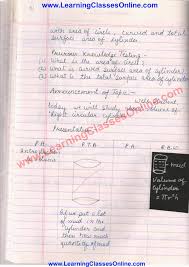 www.LearningClassesOnline.com
with area of circle, curved and total
surface area of cylinder.
Previous Knowledge Testing:-
(1) What is the area of circle?
(2) What is curved surface area of cylinder?
(3) What is the total surface area of cylinder?
Announcement of Topic:-
Well student,
today we will study about volumes of
Right circular cylinder.
Presentation:-
P.T.A.
P.A.
B.B.W
mud
Volume of
cylinder
= πr²h
If we put a lot
of mud in the
cylinder and
then how much
quantity of mud
www.LearningClassesOnline.com